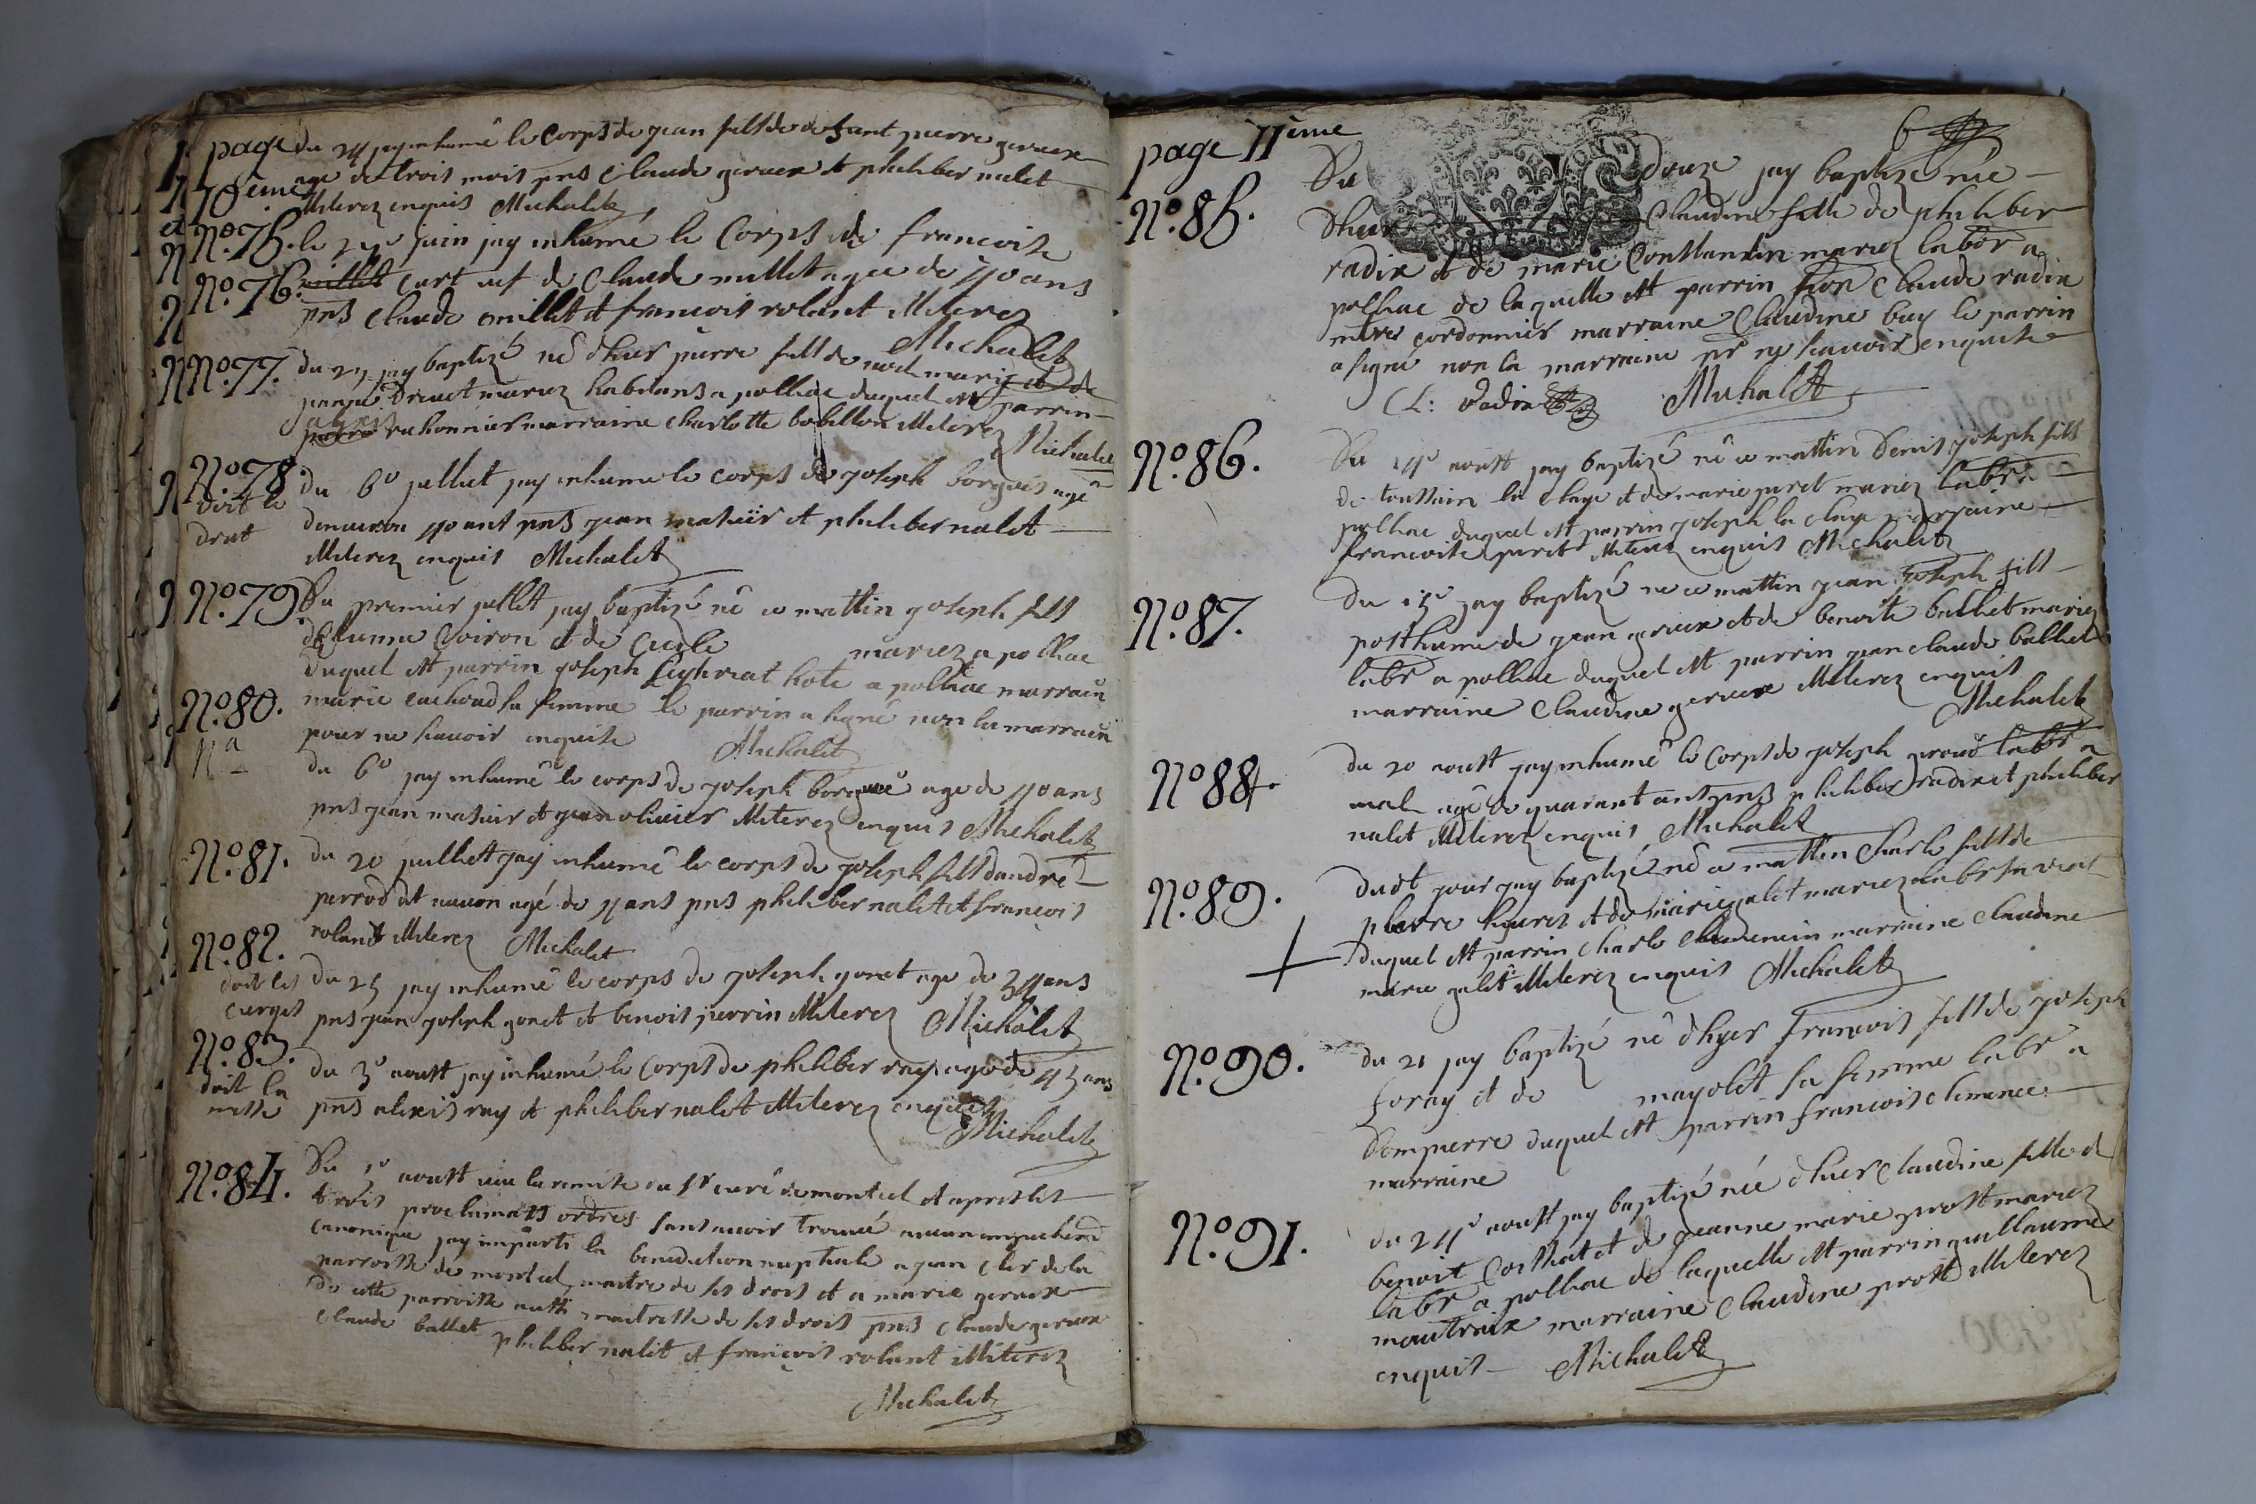 page 10ème
du 24 jay inhumé le corps de jean fils de defunt pierre gerieux
age de trois mois pns Claude gerieux et philiber nalet
illiterez enquis Michalet
No. 75. le 24e juin jay inhumé le Corps de francoise
No. 76. millet cart uef de Claude millet agee de 40 ans
pns Claude millet et francois rolant illiterez
Michalet
No. 77. du 29 jay baptizé né dhier pierre fils de noel marie et de
jeanne Druet mariez habitans a polliac duquel est parrin
pierre marraine Charlotte bobillon illiterez
Michalet
No. 78. du 6e juillet jay inhumé le corps de joseph borgeis agé
doit le denviron 40 ans pns jean masuir et philiber nalet
drat illiterez enquis Michalet
No. 79. Du premier jullet jay baptizé né ce mattin joseph fils
detienne Coiron et de Cecile mariez a polliac
duquel est parrin joseph hote a polliac marraine
No. 80. marie sa femme le parrin a signé non la marraine
pour ne scauoir enquise Michalet
du 6e jay inhumé le corps de joseph borgeis age de 40 ans
pns jean masuir et jean oliuier illiterez enquis Michalet
No. 81. du 20 juillet jay inhumé le corps de joseph fils dandré
perrod dit age de 4 ans pns philiber nalet et francois
rolant illiterez Michalet
No. 82.
doit les du 25 jay inhumé le corps de joseph gonet age de 34 ans
cierges pns jean joseph gonet et benoit perrin illiterez Michalet
No. 83.
doit la du 3e aoust jay inhumé le Corps de philiber ray age de 45 ans
messe pns alexis ray et philiber nalet illiterez enquis
Michalet
No. 84. Du 5e aoust veu la remise du sr curé de montcel et apres les
trois proclamats ordres sans auoir trouué aucun empechem
canonique jay imparti la benediction nuptiale a jean cler de la
parroisse de montcel maitre de ses droits et a marie gerieux
de cette parroisse aussi maitresse de ses droits pns Claude gerieux
Claude ballet philiber nalet et francois rolant illiterez
Michalet
page 11ème
No. 85. Du douze jay baptizé née
dhier Claudine fille de philiber
radix et de marie Constantin mariez labor a
polliac de laquelle est parrin sior Claude radix
mtre cordonnier marraine Claudine buy le parrin
a signé non la marraine pr ne scauoir enquise
CL: radix Michalet
No. 86. Du 14e aoust jay baptizé né ce mattin Denis joseph fils
de toussain la claye et de marie puret mariez labrs a
polliac duquel est parrin joseph la claye marraine
francoise puret illiterez enquis Michalet
No. 87. du 15e jay baptizé né ce mattin jean joseph fils
posthume de jean gerieux et de benoite balliet mariez
labr a polliac duquel est parrin jean claude balliet
marraine Claudine gerieux illiterez enquis
Michalet
No. 88. du 20 aoust jay inhumé le Corps de joseph proud labr a
mal agé de quarant ans pns philiber radix et philiber
nalet illiterez enquis Michalet
No. 89. dudt jour jay baptizé né ce mattin Charle fils de
pierre et de marie galet mariez labr
duquel est parrin Charle marraine Claudine
marie galet illiterez enquis Michalet
No. 90. du 21 jay baptizé né dhyer francois fils de joseph
foray et de mayolet sa femme labr a
Dompierre duquel est parrin francois clemence
marraine
No. 91. du 24e aoust jay baptizé née dhier Claudine fille de
benoit et de jeanne marie prost mariez
labr a polliac de laquelle est parrin guillaume
mautraix marraine Claudine prost illiterez
enquis Michalet